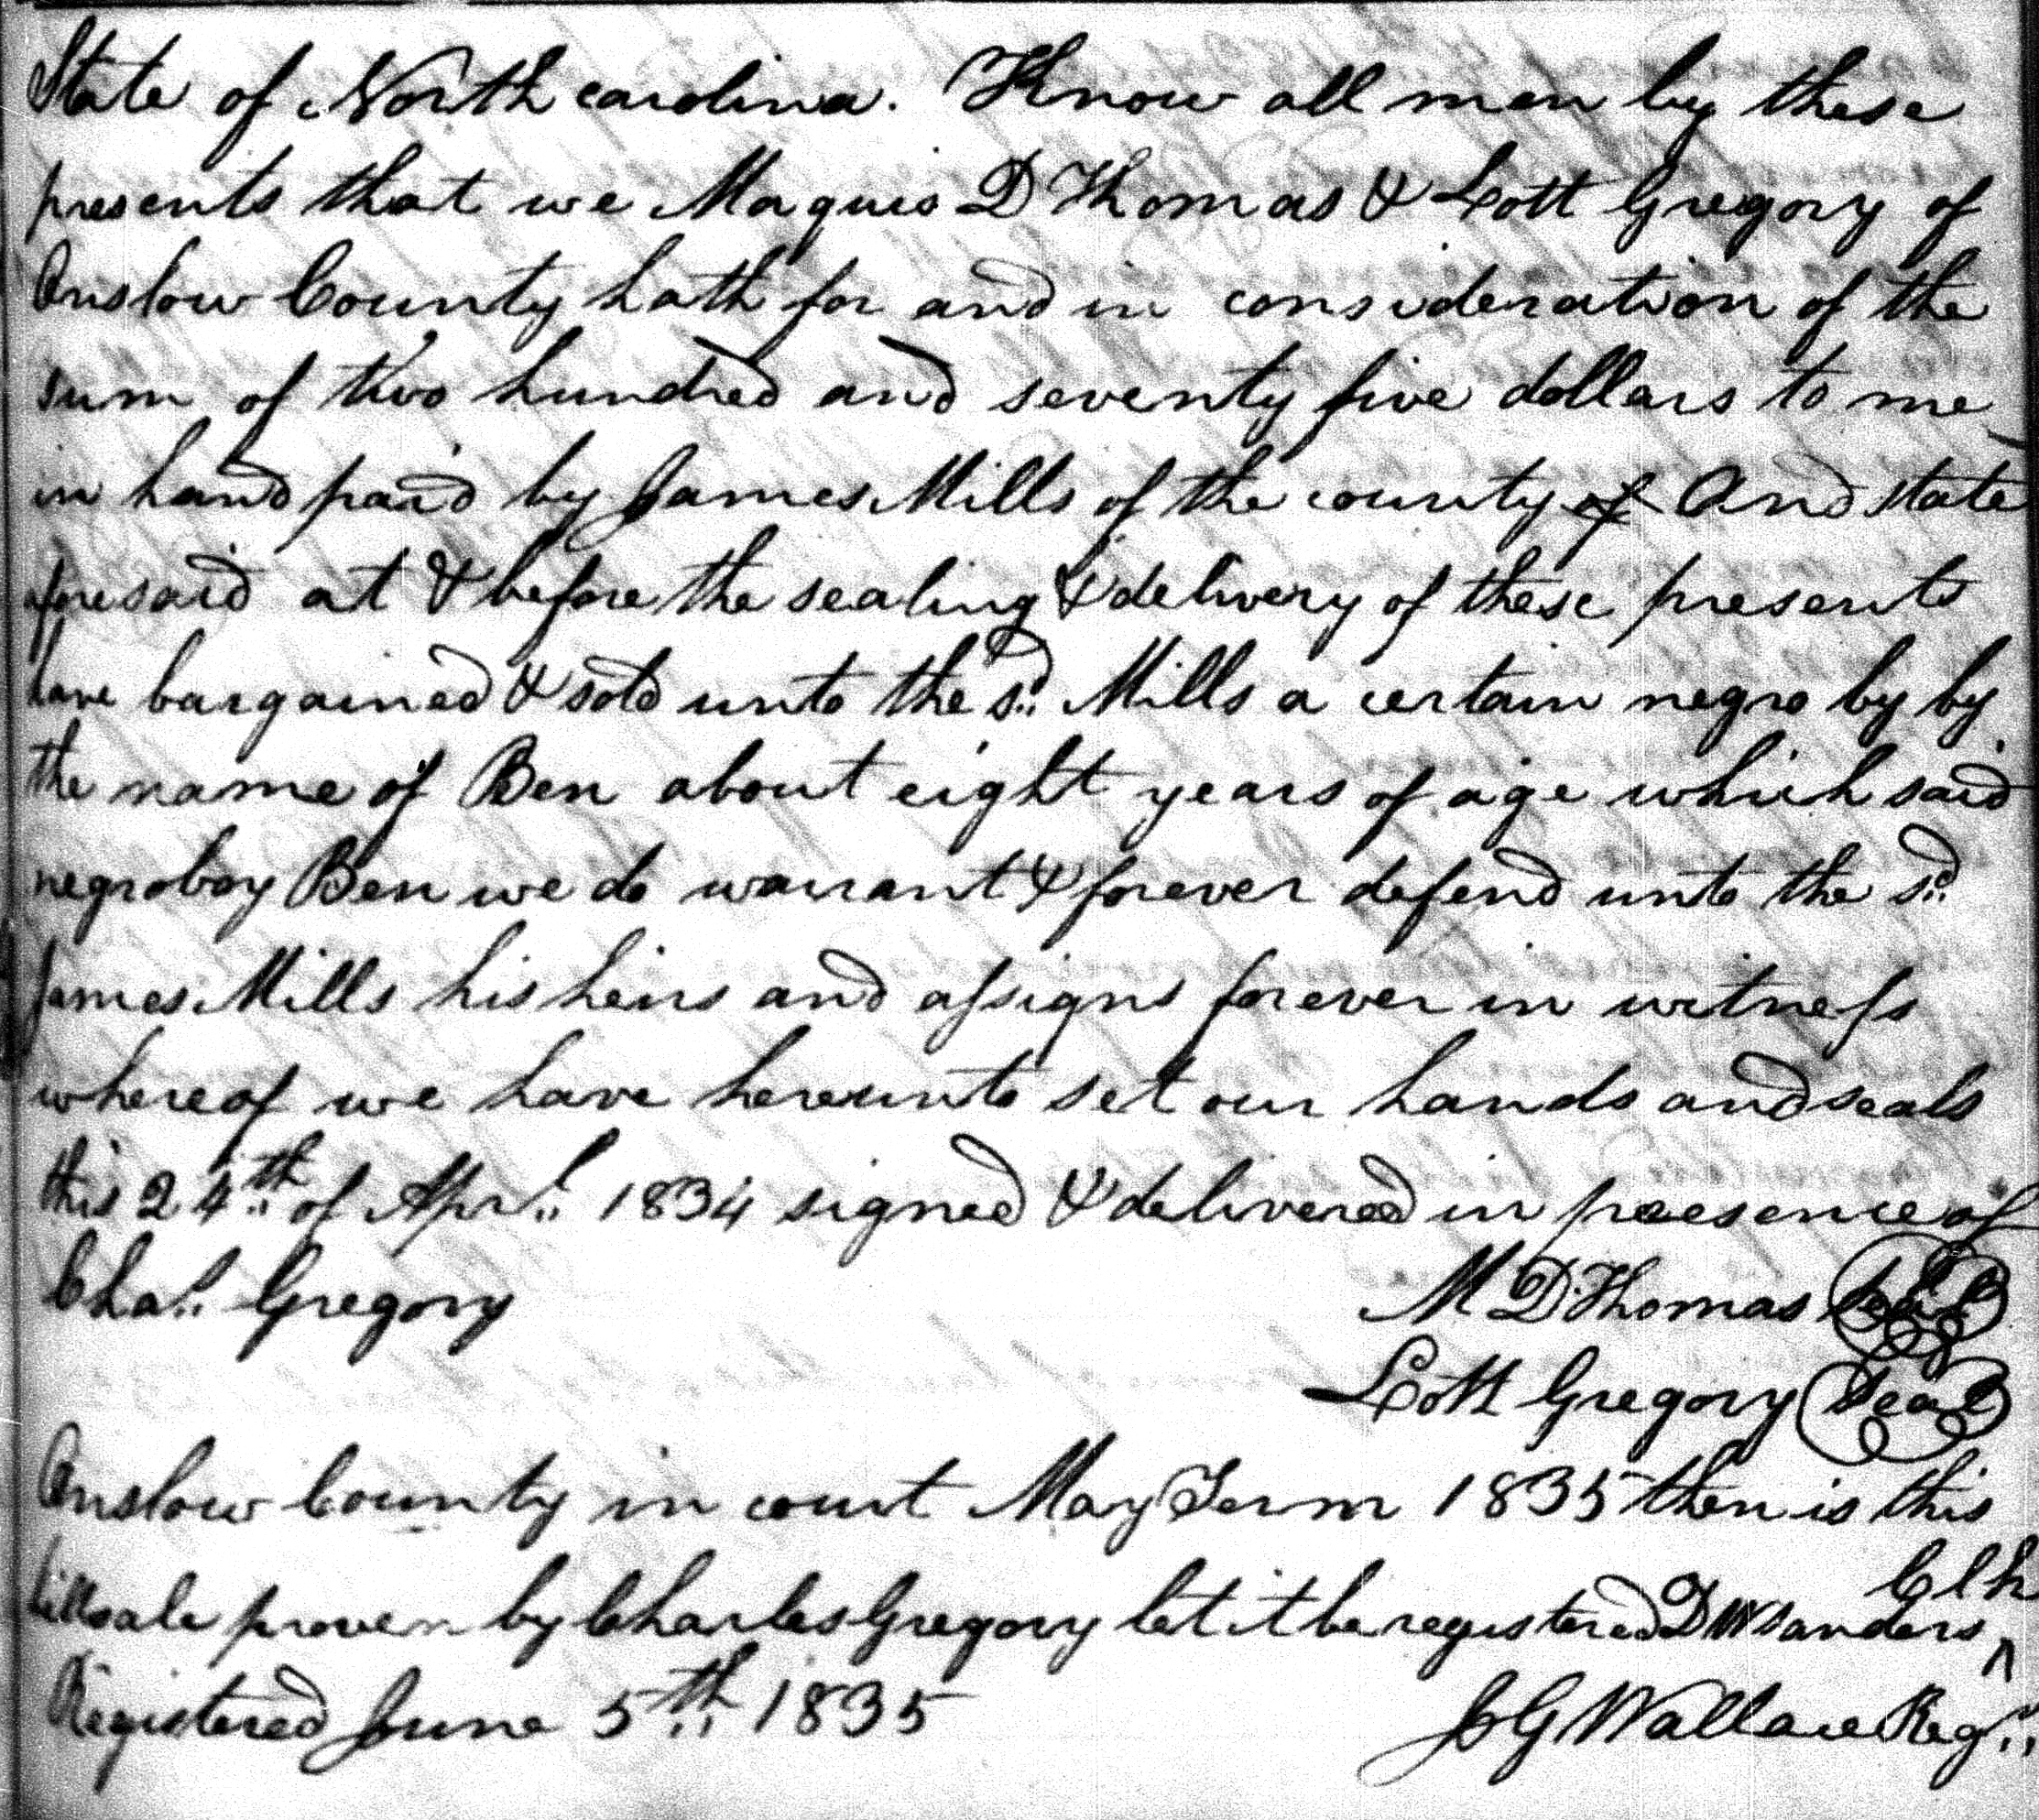 State of North carolina. Know all men by these
presents that we Maquis D Thomas & Lott Gregory of
Onslow County hath for and in consideration of the
sum of two hundred and seventy five dollars to me
in hand paid by James Mills of the county of And state
aforesaid at & before the sealing & delivery of these presents
have bargained & sold unto the sd. Mills a certain negro by by
the name of Ben about eight years of age which said
negroboy Ben we do warrant & forever defend unto the sd.
James Mills his heirs and assigns forever in witness
whereof we have hereunto set our hands and seals
this 24th of Aprl. 1834 signed & delivered in presence of
Chas. Gregory M D Thomas Seal
Lott Gregory Seal
Onslow County in court May Term 1835 then is this
billsale proven by Charles Gregory let it be registered D W Sanders Clk
Registered June 5th 1835 J G Wallace Regr.